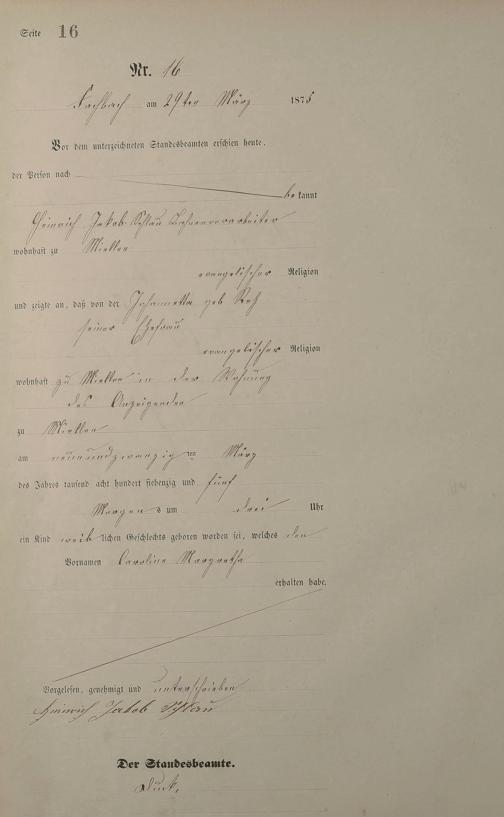 Seite 16
Nr. 16
Fachbach am 29ten März 1875
Vor dem unterzeichneten Standesbeamten erschien heute,
der Person nach
bekannt
Heinrich Jakob Schlau
wohnhaft zu Miellen
evangelischer Religion
und zeigte an, daß von der Johannetta geb
seiner Ehefrau
evangelischer Religion
wohnhaft zu Miellen in der Wohnung
des Anzeigenden
zu Miellen
am neunundzwanzig ten März
des Jahres tausend acht hundert siebenzig und fünf
Morgens um drei Uhr
ein Kind weiblichen Geschlechts geboren worden sei, welches den
Vornamen Caroline Margretha
erhalten habe.
Vorgelesen, genehmigt und unterschrieben
Heinrich Jakob Schlau
Der Standesbeamte.